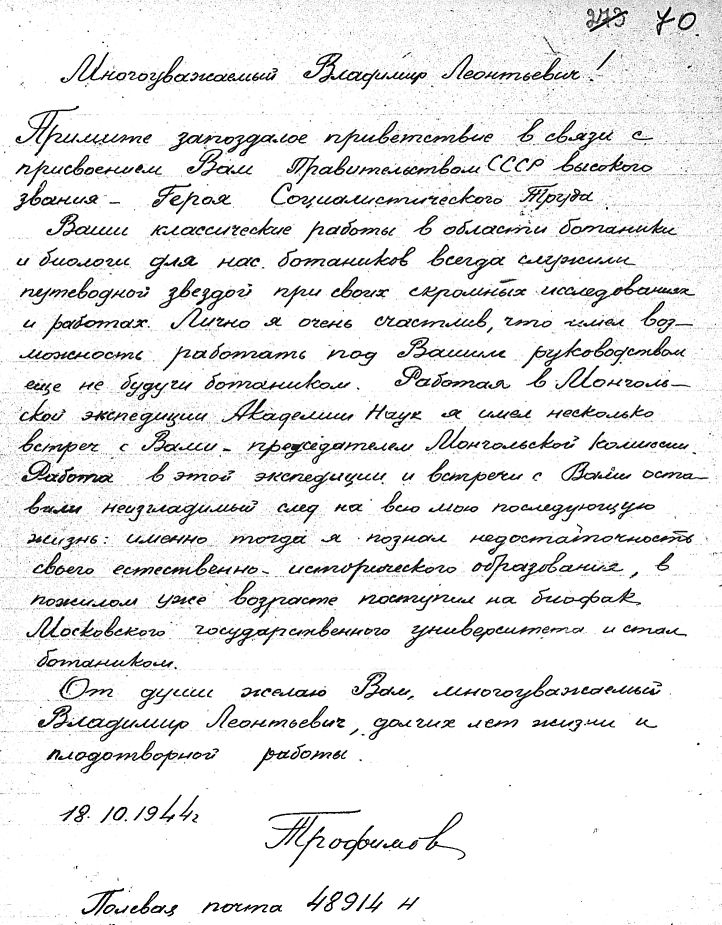 273 70.
Многоуважаемый Владимир Леонтьевич!
Примите запоздалое приветствие в связи с
присвоением Вам Правительством СССР высокого
звания – Героя Социалистического Труда
Ваши классические работы в области ботаники
и биологи для нас ботаников всегда служили
путеводной звездой при своих скромных исследованиях
и работах. Лично я очень счастлив, что имел воз-
можность работать под Вашим руководством
еще не будучи ботаником. Работая в Монголь-
ской экспедиции Академии Наук я имел несколько
встреч с Вами – председателем Монгольской Комиссии.
Работа в этой экспедиции и встречи с Вами оста-
вили неизгладимый след на всю мою последующую
жизнь: именно тогда я познал недостаточность
своего естественно-исторического образования, в
пожилом уже возрасте поступил на биофак
Московского государственного университета и стал
ботаником.
От души желаю Вам, многоуважаемый
Владимир Леонтьевич, долгих лет жизни и
плодотворной работы.
18.10.1944г
Трофимов
Полевая почта 48914 н